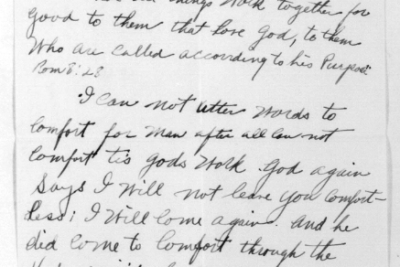 things work together for
good to them that love God, to them
Who are called according to his Purpose.
Rom 8:28
I can not utter words to
Comfort for Man after all can not
Comfort tis gods Work. God again
Says I Will not leave you Comfort-
less; I Will come again. And he
did Come to Comfort through the